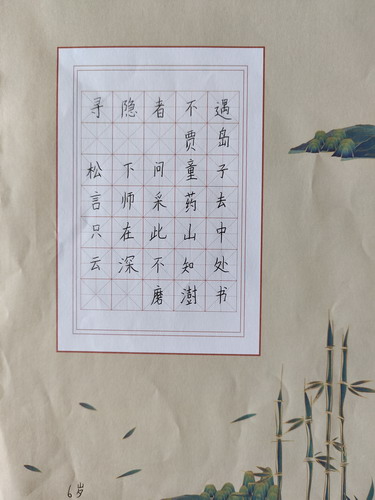 寻隐者不遇
贾岛
松下问童子
言师采药去
只在此山中
云深不知处
磨澍书
6岁